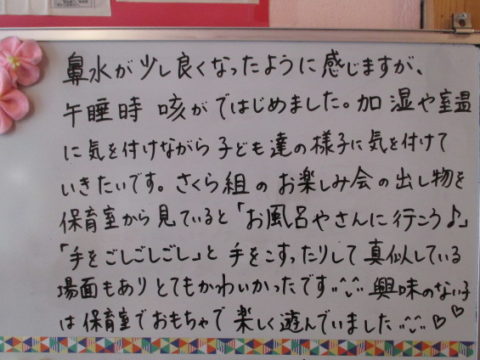 鼻水が少し良くなったように感じますが、
午睡時 咳がではじめました。加湿や室温
に気を付けながら子ども達の様子に気を付けて
いきたいです。さくら組のお楽しみ会の出し物を
保育室から見ていると「お風呂やさんに行こう♪」
「手をごしごしごし」と手をこすったりして真似している
場面もありとてもかわいかったです^^ 興味のない子
は保育室でおもちゃで楽しく遊んでいました^^♡♡